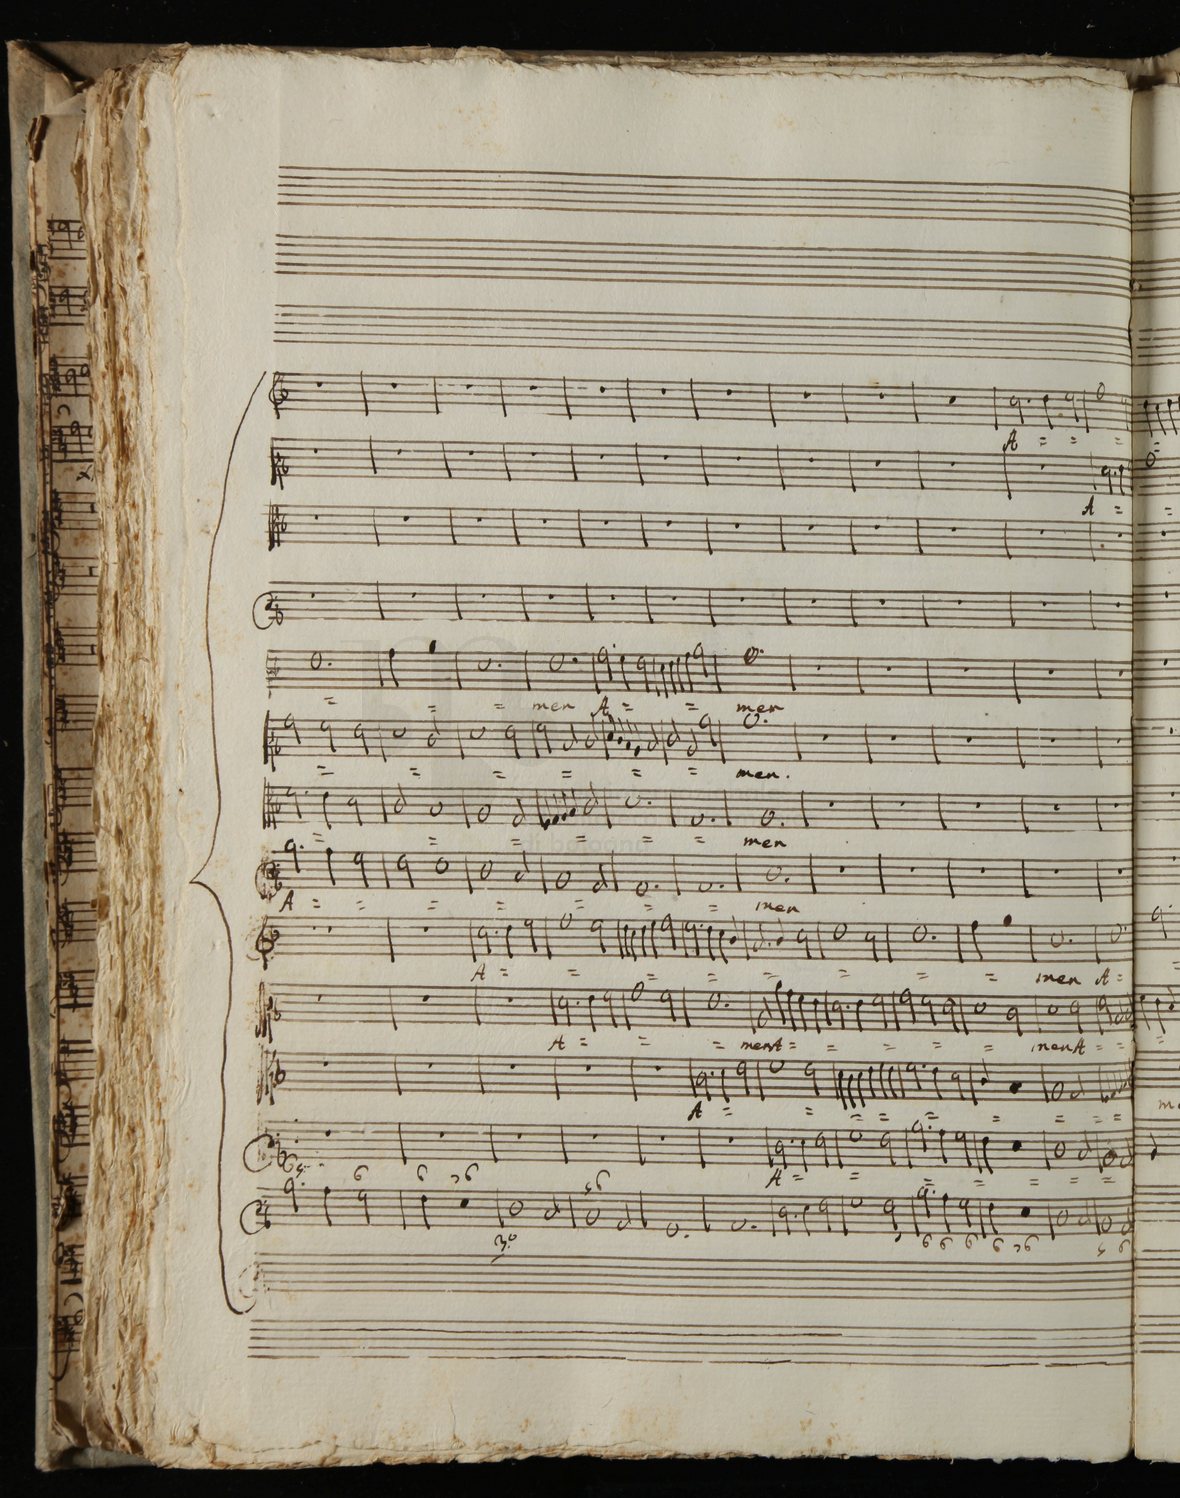 A = = =
A = =
= = = men A = = men
= = = = = = men.
= = = = = = men
A = = = = = = men
A = = = = = = = men A =
A = = = men A = = = = = men A = =
A = = = = = = = =
A = = = = = =
6 6 6
5 6
6 6 6 6 6
5 6